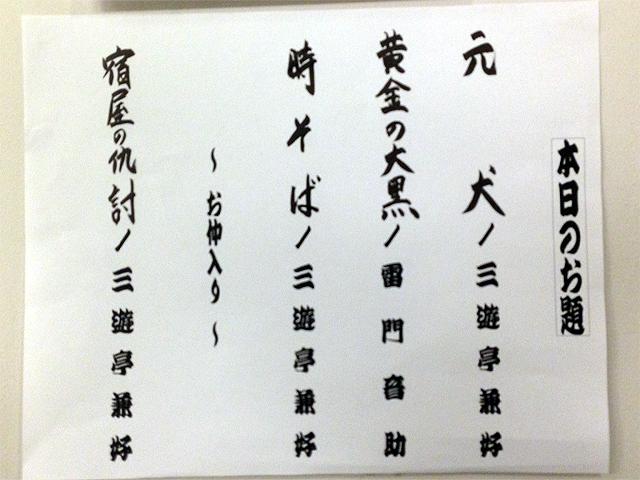 本日のお題
元犬/三遊亭兼好
黄金の大黒/雷門音助
時そば/三遊亭兼好
~お仲入り~
宿屋の仇討/三遊亭兼好